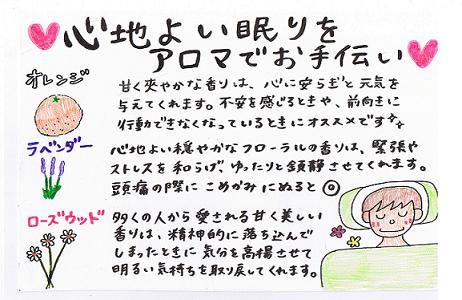 心地よい眠りを
アロマでお手伝い
オレンジ
甘く爽やかな香りは、心に安らぎと元気を
与えてくれます。不安を感じるときや、前向きに
行動できなくなっているときにオススメです
ラベンダー
心地よい穏やかなフローラルの香りは、緊張や
ストレスを和らげ、ゆったりと鎮静させてくれます。
頭痛の際にこめかみにぬると◎
ローズウッド
多くの人から愛される甘く美しい
香りは、精神的に落ち込んで
しまったときに気分を高揚させて
明るい気持ちを取り戻してくれます。